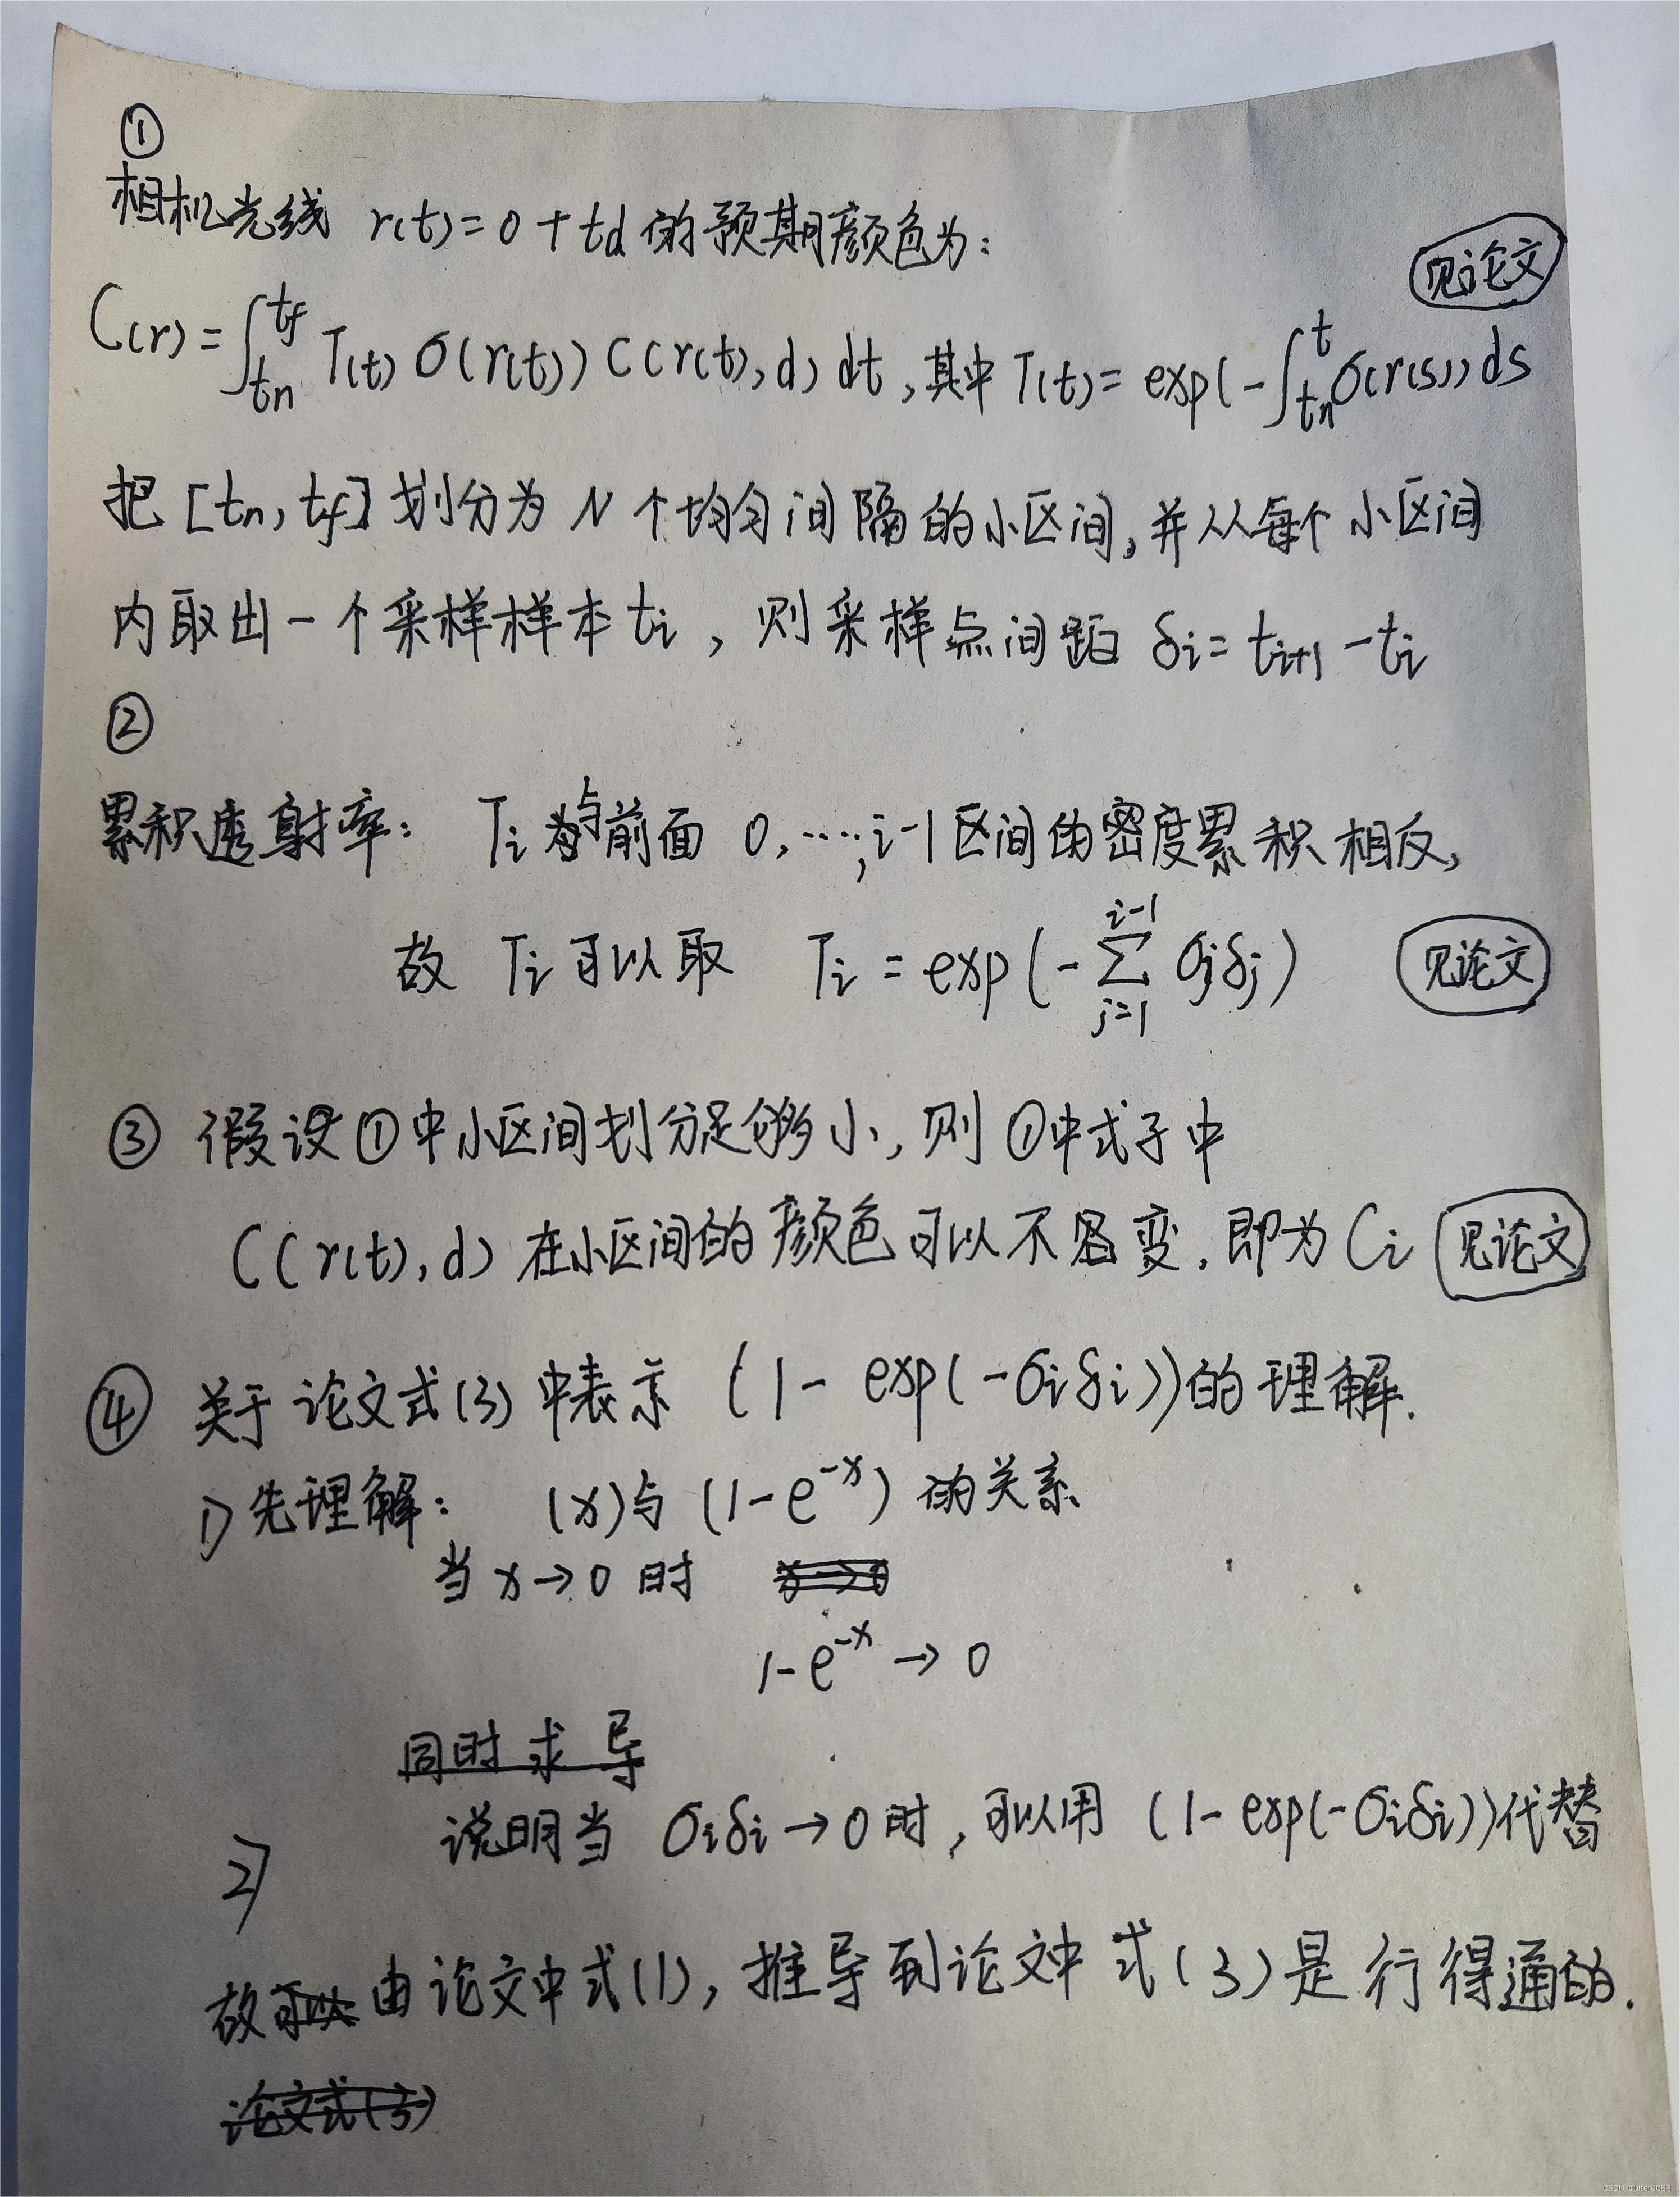 ①
相机光线 r(t)=o+td 的预期颜色为:
见论文
C(r)=∫_{tn}^{tf} T(t) σ(r(t)) C(r(t),d) dt,其中 T(t)= exp(-∫_{tn}^{t}σ(r(s))ds
把 [tn,tf] 划分为 N 个均匀间隔的小区间,并从每个小区间
内取出一个采样样本 ti , 则采样点间距 δi= ti+1 -ti
②
累积透射率: Ti 与前面 0,…,i-1区间的密度累积相反,
故 Ti 可以取 Ti = exp(-∑_{j=1}^{i-1} σjδj) 见论文
③ 假设①中小区间划分足够小,则①中式子中
C(r(t),d) 在小区间的颜色可以不变.即为 Ci 见论文
④ 关于论文式(3) 中表示 (1- exp(-σiδi))的理解.
1)先理解: (x)与 (1-e^{-x}) 的关系
当 x→0 时
1-e^{-x} → 0
同时求导
说明当 σiδi→0时,可以用 (1- exp(-σiδi))代替
2)
故由论文中式(1),推导到论文中式(3)是行得通的.
论文式(3)
CSDN @biter0088